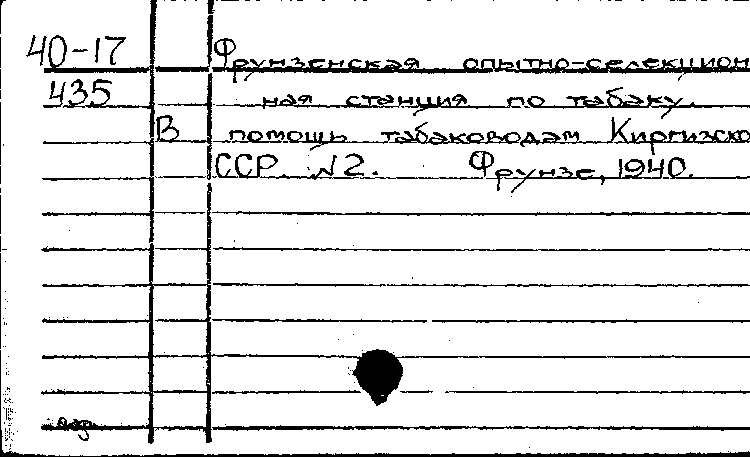 40-17 Фрунзенская опытно-селекцион
435 ная станция по табаку.
В помощь табаководам Киргизско
ССР. №2. Фрунзе, 1940.